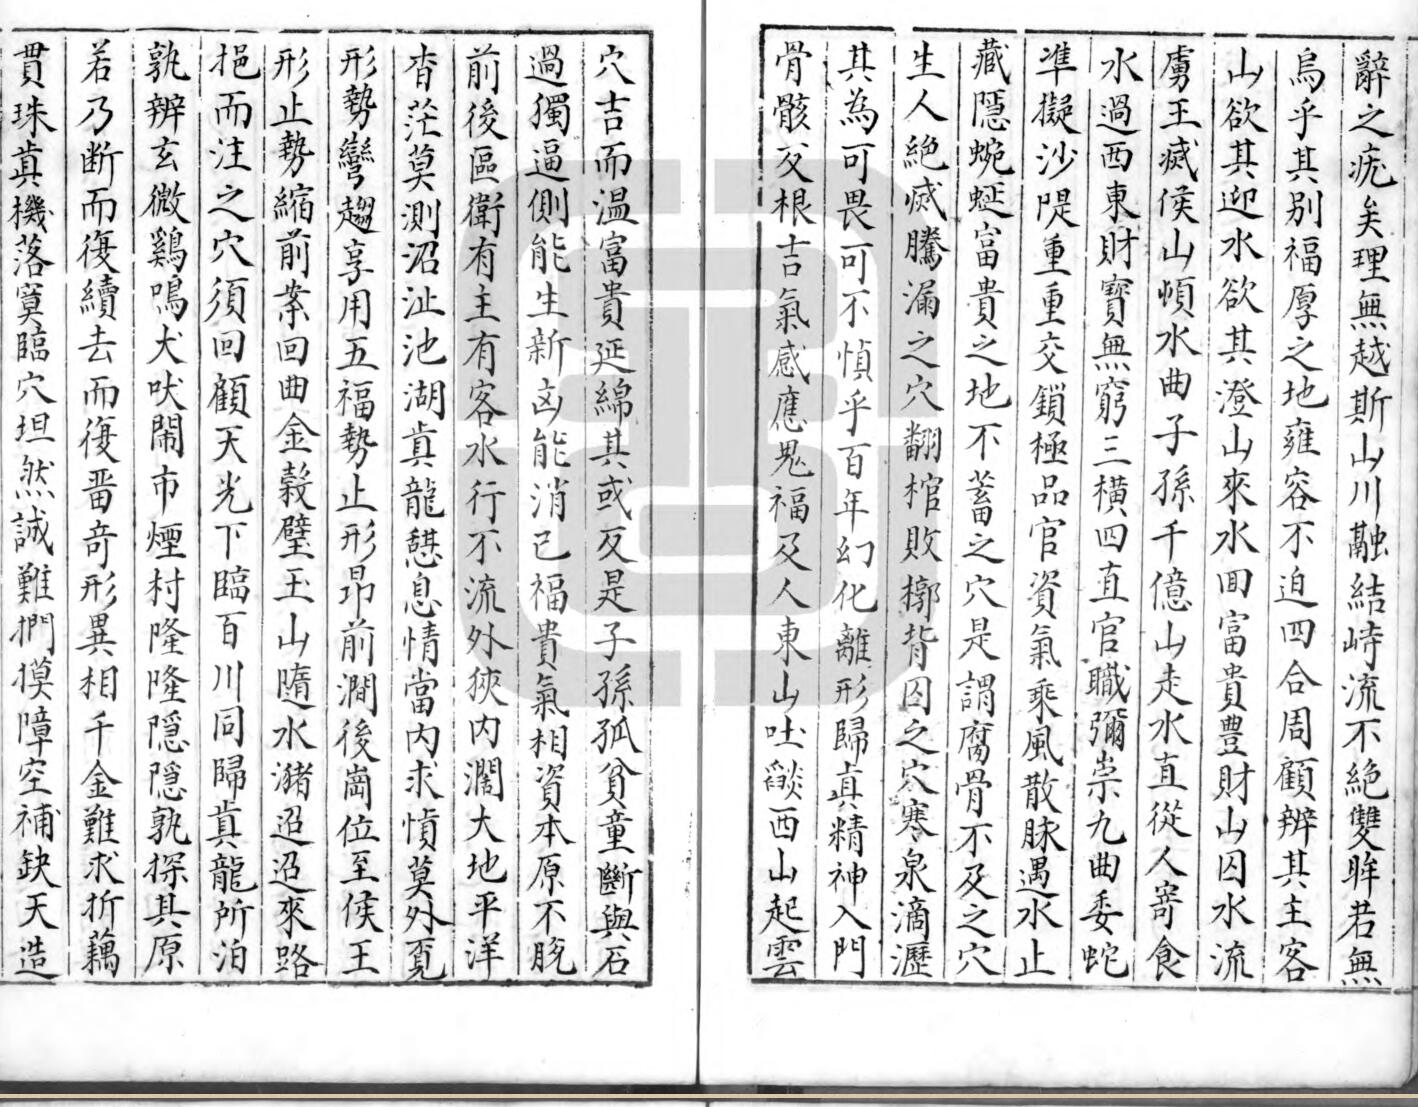 辭之疣矣理無越斯山川融結峙流不絶雙眸若無
烏乎其别福厚之地雍容不迫四合周顧辨其主客
山欲其迎水欲其澄山來水囬富貴豐財山囚水流
虜王滅侯山頓水曲子孫千億山走水直從人寄食
水過西東財寶無窮三横四直官職彌崇九曲委蛇
凖擬沙隄重重交鎖極品官資氣乘風散脉遇水止
藏隱蜿蜒富貴之地不蓄之穴是謂腐骨不及之穴
生人絶滅騰漏之穴翻棺敗槨背囚之穴寒泉滴瀝
其為可畏可不慎乎百年幻化離形歸真精神入門
骨骸反根吉氣感應鬼福及人東山吐燄西山起雲
穴吉而温富貴延綿其或反是子孫孤貧童斷與石
過獨逼側能生新凶能消已福貴氣相資本原不脱
前後區衛有主有客水行不流外狹内濶大地平洋
杳茫莫測沼沚池湖真龍憇息情當内求慎莫外覔
形勢彎趨享用五福勢止形昂前澗後崗位至侯王
形止勢縮前案回曲金榖璧玉山隨水瀦迢迢來路
挹而注之穴須回顧天光下臨百川同歸真龍所泊
孰辨玄微鷄鳴犬吠閙市煙村隆隆隱隱孰探其原
若乃断而復續去而復畱竒形異相千金難求折藕
貫珠真機落莫臨穴坦然誠難捫摸障空補缺天造